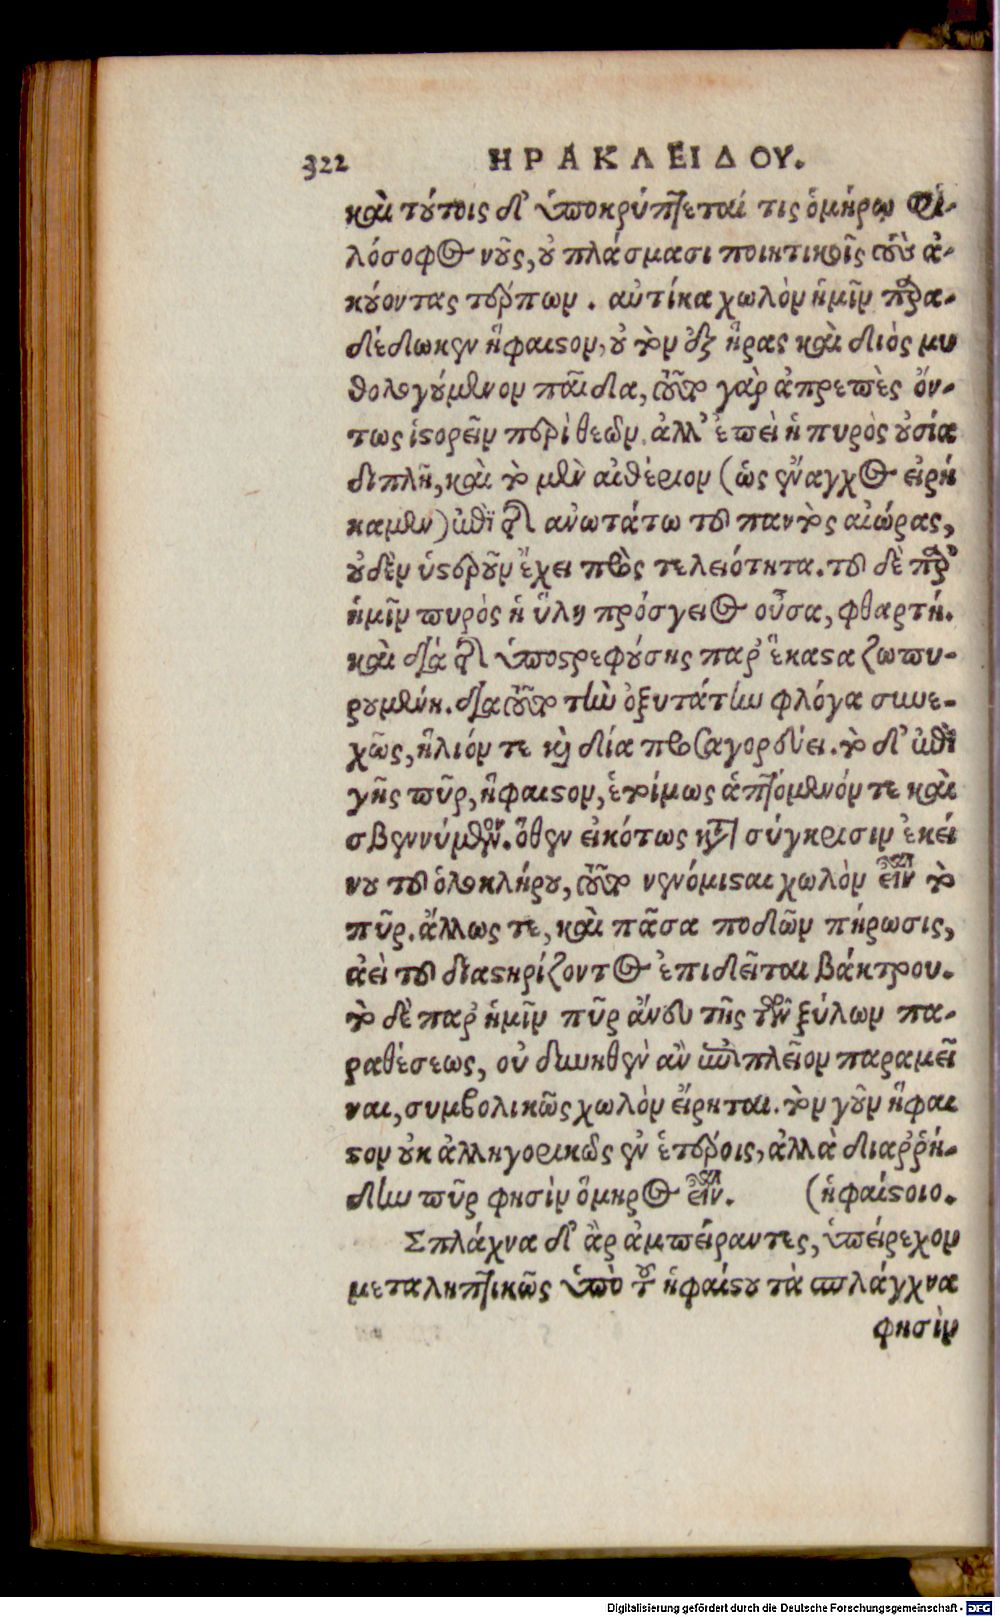 322 ΗΡΑΚΛΕΙΔΟΥ.
καὶ τούτοις δ' ὑποκρύπτεταί τις ὁμήρῳ φι-
λόσοφος νοῦς, οὐ πλάσμασι ποιητικοῖς τοὺς ἀ-
κούοντας τέρπων. αὐτίκα χωλὸν ἡμῖν παρα-
δέδωκεν ἥφαιστον, οὐ τὸν ἐξ ἥρας καὶ διὸς μυ
θολογούμενον παῖδα, τοῦτο γὰρ ἀπρεπὲς ὄν-
τως ἱστορεῖν περὶ θεῶν. ἀλλ' ἐπεὶ ἡ πυρὸς οὐσία
διπλῆ, καὶ τὸ μὲν αἰθέριον (ὡς ἔναγχος εἰρή
καμεν) ἐπὶ τῆς ἀνωτάτω τοῦ παντὸς αἰώρας,
οὐδὲν ὑστεροῦν ἔχει πρὸς τελειότητα. τοῦ δὲ παρ'
ἡμῖν πυρὸς ἡ ὕλη πρόσγειος οὖσα, φθαρτή.
καὶ διὰ τῆς ὑποστρεφούσης παρ' ἕκαστα ζωπυ-
ρουμένη. διὰ τοῦτο τὴν ὀξυτάτην φλόγα συνε-
χῶς, ἥλιόν τε καὶ δία προσαγορεύει. τὸ δ' ἐπὶ
γῆς πῦρ, ἥφαιστον, ἑτοίμως ἁπτόμενόν τε καὶ
σβεννύμενον. ὅθεν εἰκότως κατὰ σύγκρισιν ἐκεί
νου τοῦ ὁλοκλήρου, τοῦτο νενόμισται χωλὸν εἶναι τὸ
πῦρ. ἄλλως τε, καὶ πᾶσα ποδῶν πήρωσις,
ἀεὶ τοῦ διαστηρίζοντος ἐπιδεῖται βάκτρου.
τὸ δὲ παρ' ἡμῖν πῦρ ἄνευ τῆς τῶν ξύλων πα-
ραθέσεως, οὐ δυνηθὲν ἂν ἐπὶ πλεῖον παραμεῖ
ναι, συμβολικῶς χωλὸν εἴρηται. τὸν γοῦν ἥφαι
στον οὐκ ἀλληγορικῶς ἐν ἑτέροις, ἀλλὰ διαῤῥή-
δην πῦρ φησὶν ὅμηρος εἶναι. (ἡφαίστοιο.
Σπλάχνα δ' ἂρ ἀμπείραντες, ὑπείρεχον
μεταληπτικῶς ὑπὸ τοῦ ἡφαίστου τὰ σπλάγχνα
φησὶν
Digitalisierung gefördert durch die Deutsche Forschungsgemeinschaft - DFG